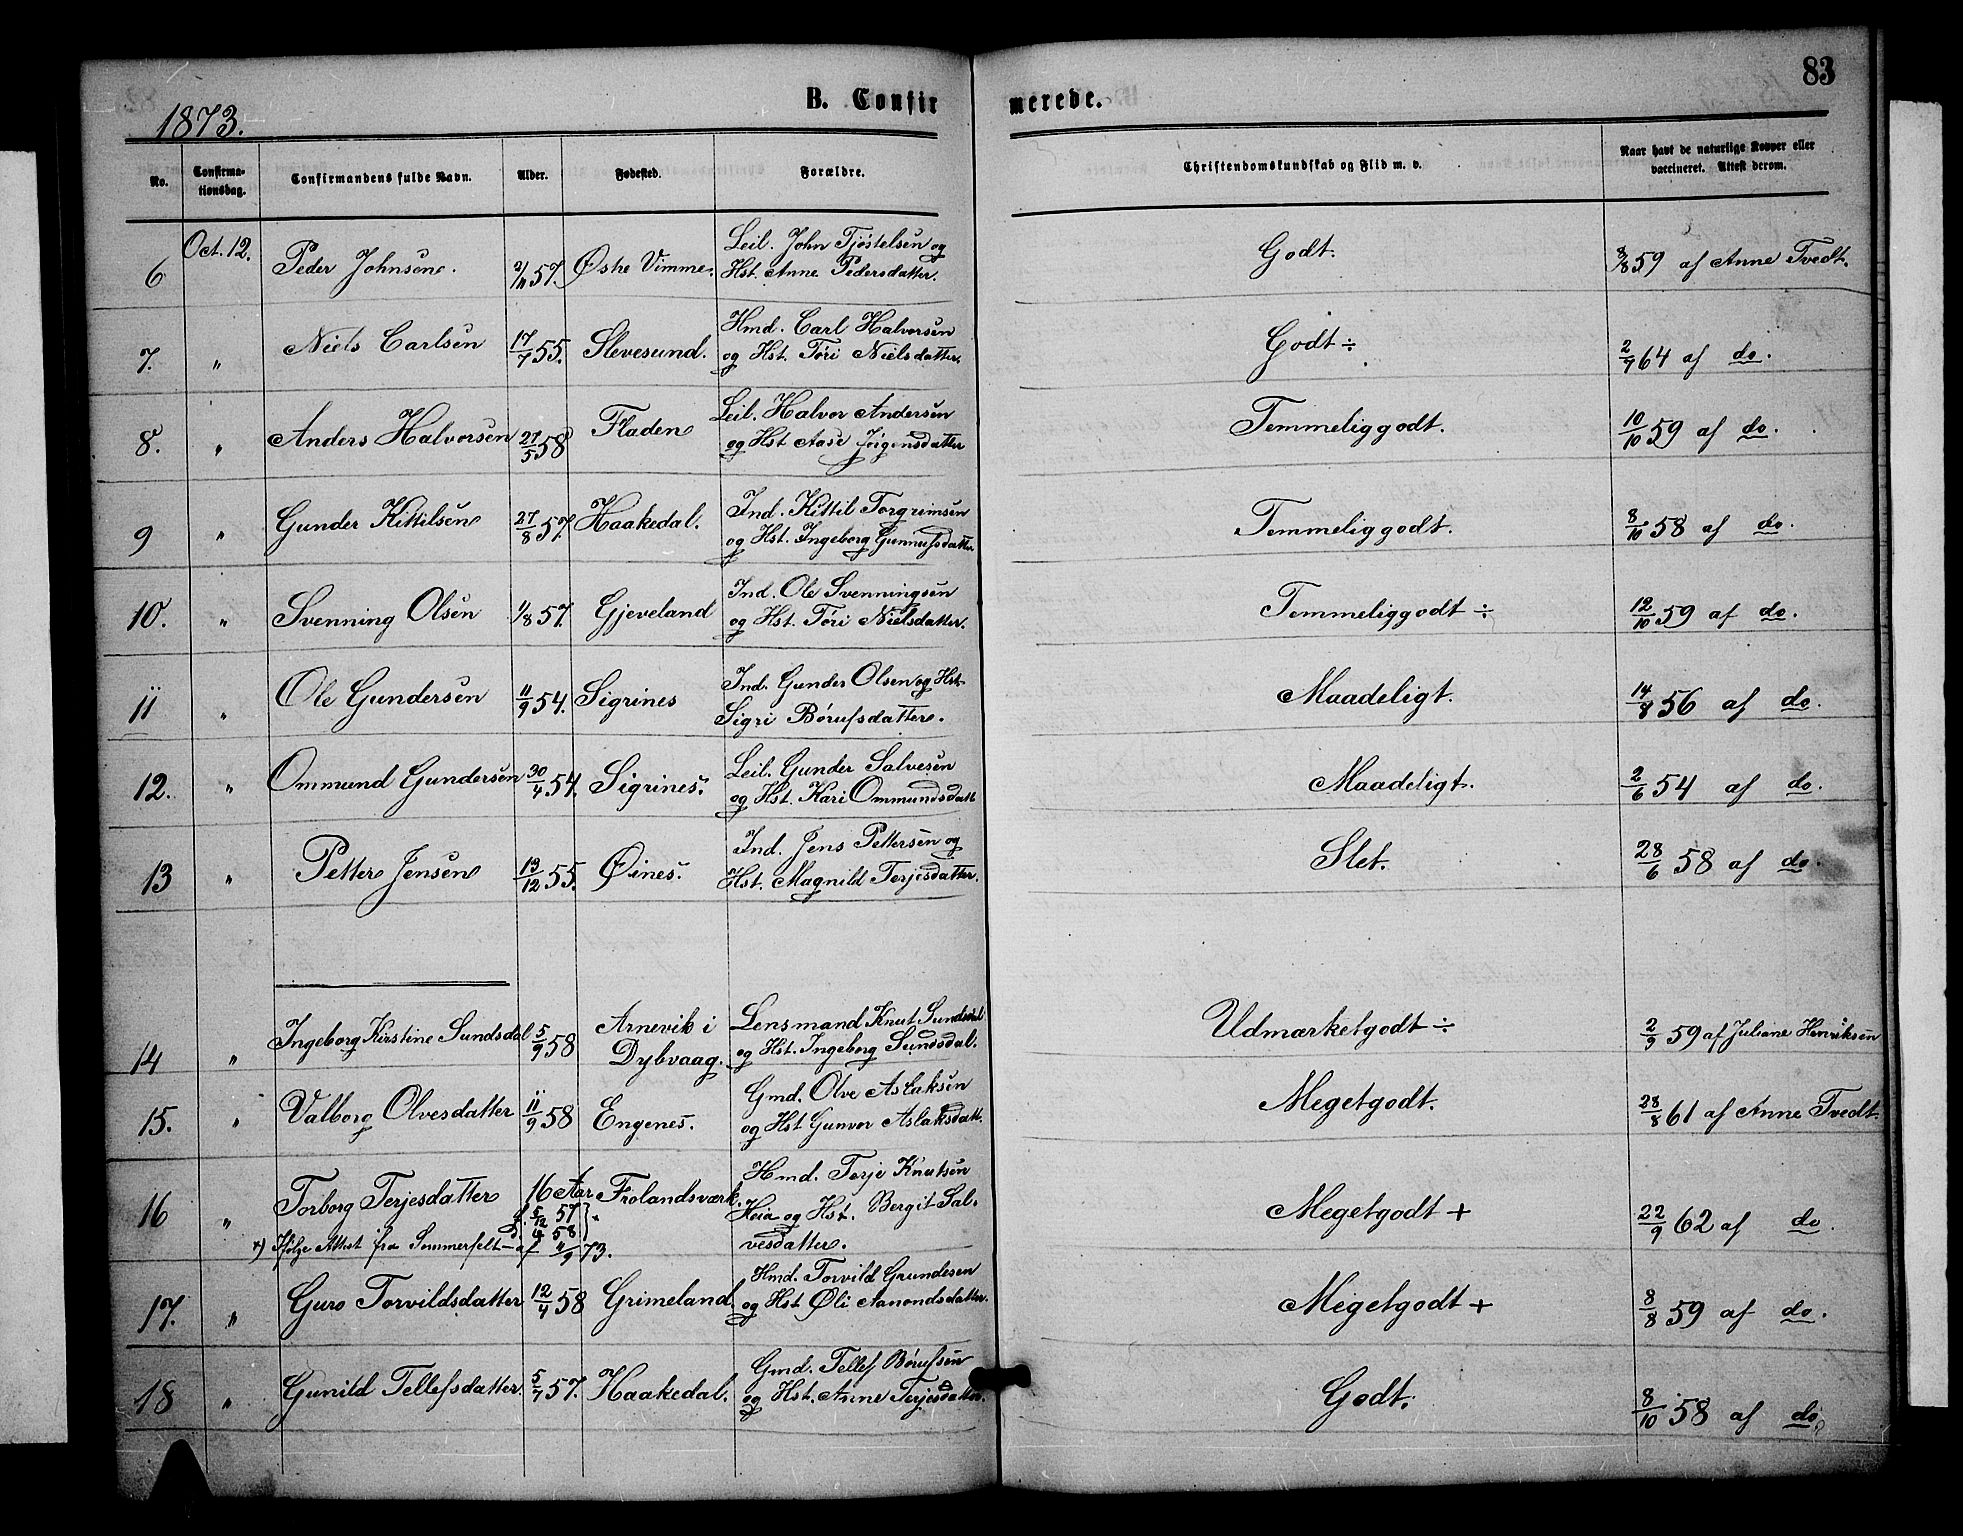 83
B. Confirmerede.
1873.
No. Confirmationsdag. Confirmandens fulde Navn. Alder. Fødested. Forældre. Christendomskundskab og Flid m. v. Naar havt de naturlige Kopper eller vaccineret. Attest derom.
6 Oct. 12. Peder Johnsen. 2/11 57. Østre Vimme. Leil. John Tjøstelsen og Godt. 3/8 59 af Anne Tvedt.
Hst. Anne Pedersdatter.
7. " Niels Carlsen 17/7 55. Slevesund. Hmd. Carl Halvorsen Godt ÷ 2/7 64 af do.
og Hst. Tóri Nielsdatter.
8. " Anders Halvorsen 27/5 58 Fladen Leil. Halvor Andersen Temmeliggodt. 10/10 59 af do.
og Hst Aase Jörgensdatter
9 " Gunder Kittilsen 27/8 57. Haakedal. Ind. Kittil Torgrimsen Temmeliggodt. 8/10 58 af do.
og Hst. Ingeborg Gunnufsdatter
10. " Svenning Olsen 1/8 57. Gjeveland Ind. Ole Svenningsen Temmeliggodt ÷ 12/10 59 af do.
og Hst. Tóri Nielsdatter.
11 " Ole Gundersen 11/9 54. Sigrines Ind. Gunder Olsen og Hst. Maadeligt. 14/8 56 af do.
Sigri Börufsdatter.
12. " Ommund Gundersen 30/4 54. Sigrines. Leil. Gunder Salvesen Maadeligt. 2/6 54 af do.
og Hst. Kari Ommundsdatt
13 " Petter Jensen 13/12 55. Øines. Ind. Jens Pettersen og Slet. 28/6 58 af do.
Hst. Magnild Terjesdatter.
14 " Ingeborg Kirstine Sundsdal 5/9 58 Arnevik i Dybvaag. Lensmand Knut Sundsdal Udmærketgodt ÷ 2/9 59 af Juliane Henriksen
og Hst. Ingeborg Sundsdal.
15. " Valborg Olvesdatter 11/9 58 Engenes. Gmd. Olve Aslaksen Megetgodt. 28/8 61 af Anne Tvedt.
og Hst Gunvor Aslaksdatt.
16 " Torborg Terjesdatter 16 Aar Frolandsværk. Hmd. Terje Knutsen Megetgodt + 22/9 62 af do.
f. 5/12 57 Heia og Hst. Bergit Sal-
d. 58 vesdatter.
x) Ifölge Attest fra Sommerfelt af 73.
17. " Guro Torvildsdatter 12/4 58 Grimeland. Hmd. Torvild Grundesen Megetgodt + 8/8 59 af do.
og Hst. Øli Aanondsdatter.
18 " Gunild Tellefsdatter. 5/7 57. Haakedal. Gmd. Tellef Börufsen Godt. 8/10 58 af do.
og Hst. Anne Terjesdatter.